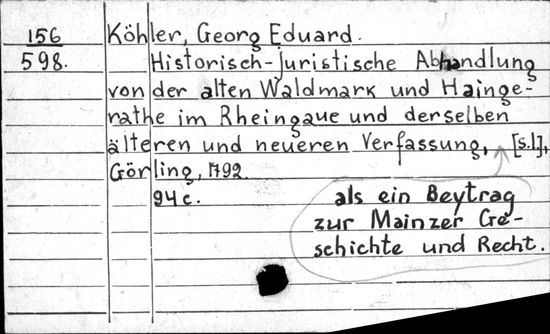 156 Köhler, Georg Eduard.
598. Historisch-juristische Abhandlung
von der alten Waldmark und Hainge-
rathe im Rheingaue und derselben
älteren und neueren Verfassung, [s.l.],
Görling, 1792.
94 c.
als ein Beytrag
zur Mainzer Ge-
schichte und Recht.